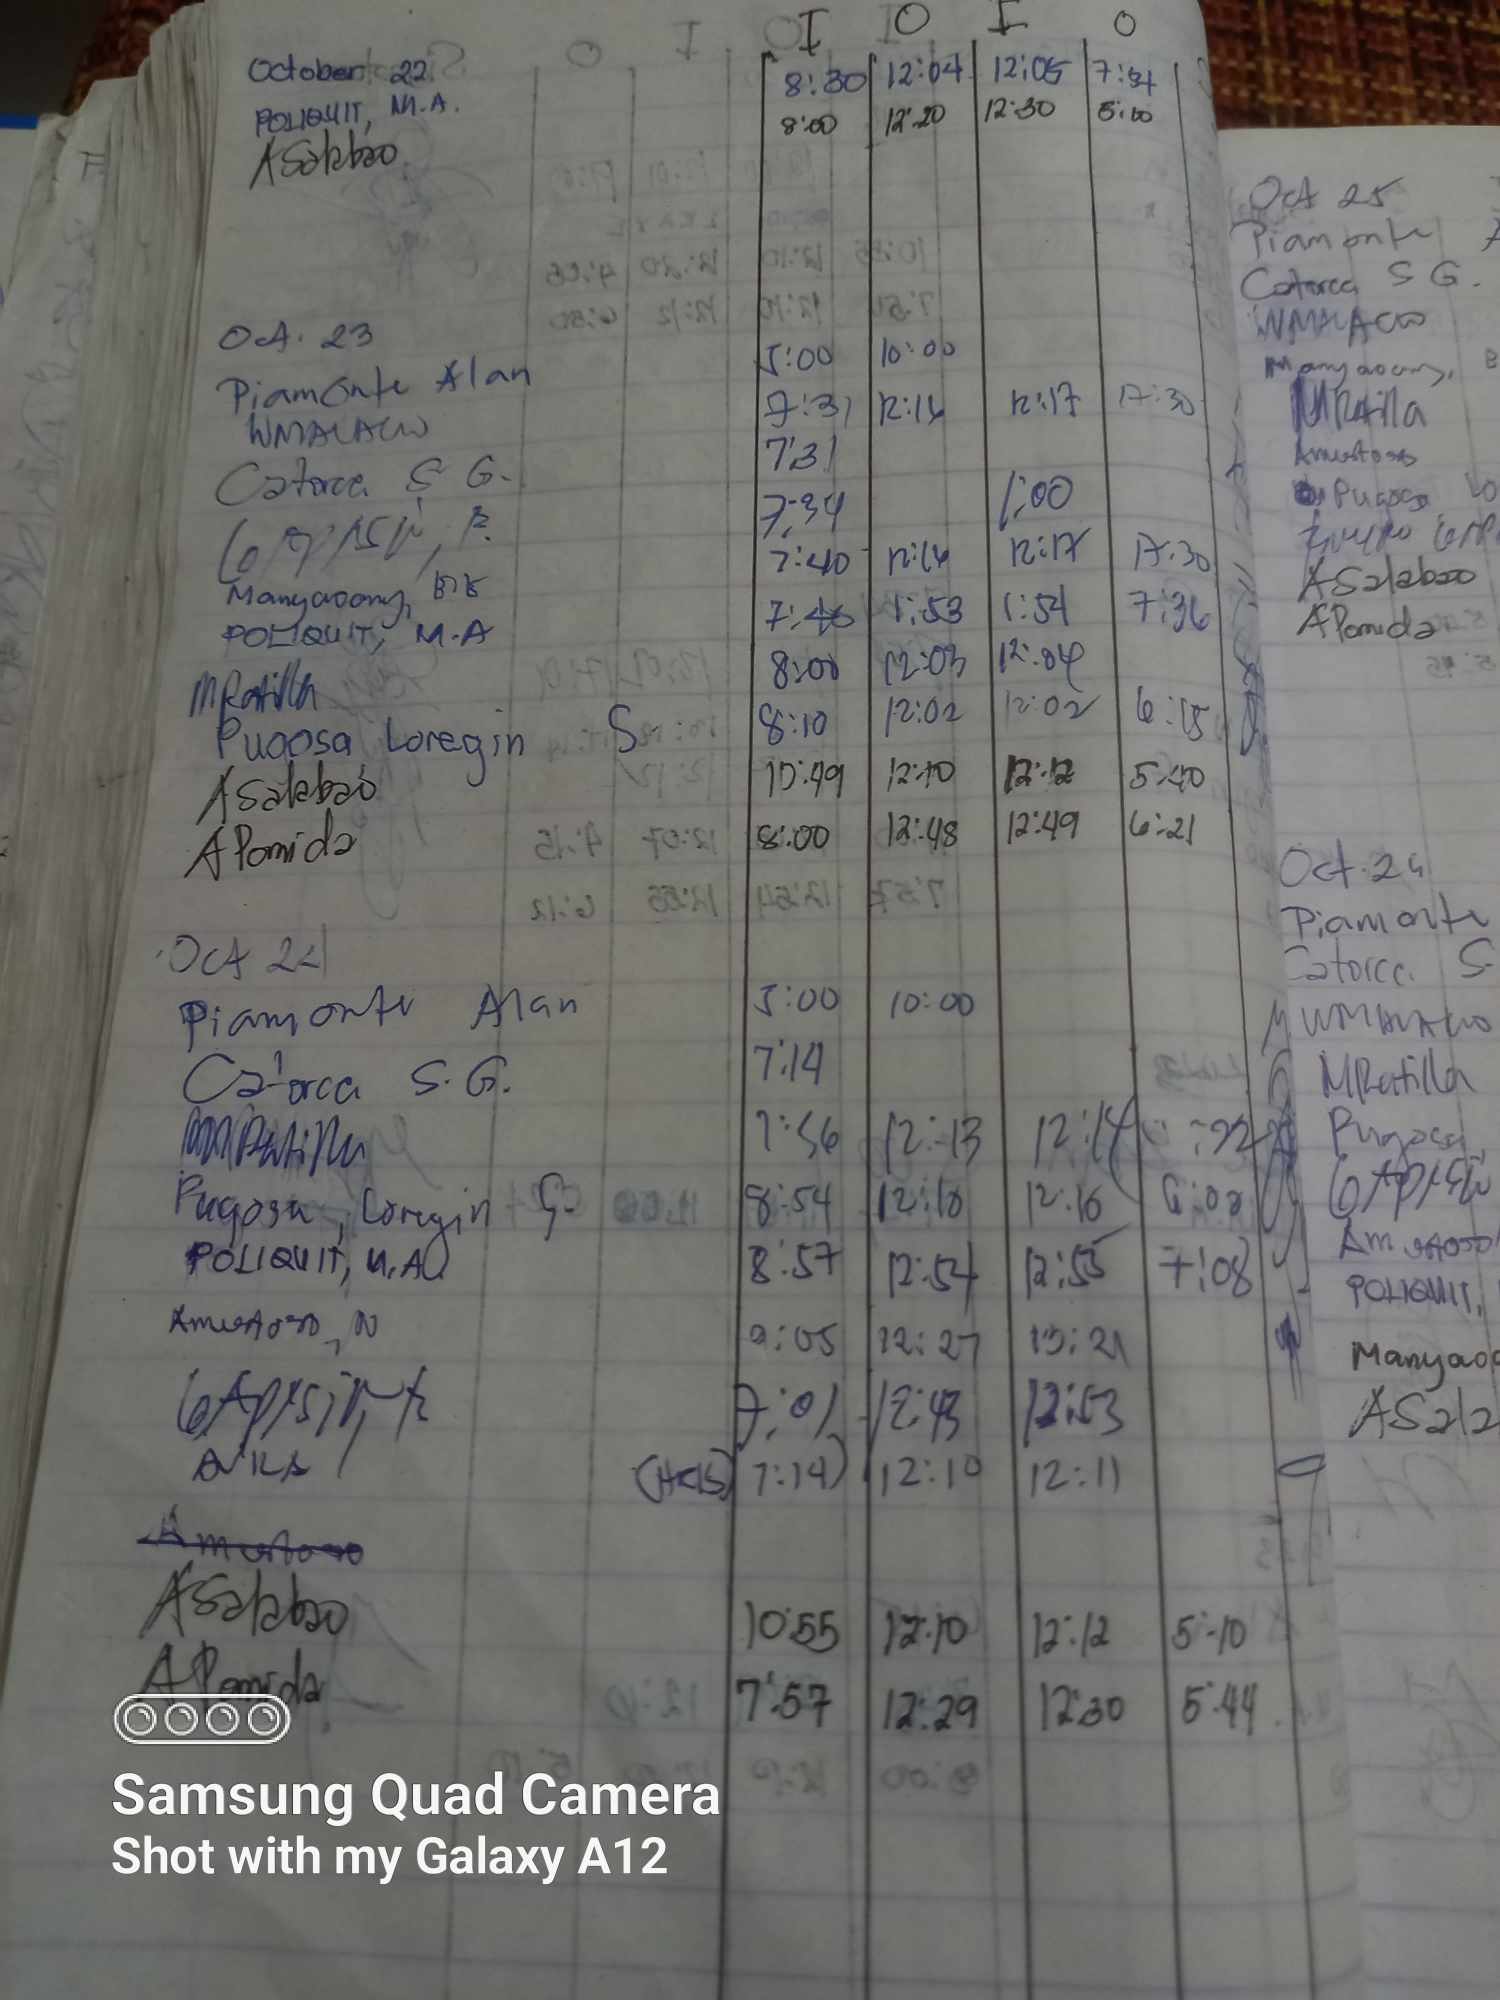 I O I O
October 22
POLIQUIT, M.A. 8:30 12:04 12:05
ASalabao 8:00 12:20 12:30 5:00
Oct. 23
Piamonte Alan 5:00 10:00
WMALACO 7:31 12:16 12:17 17:30
Catorca S G. 7:31
7:34 1:00
Manyaoang, 7:40 12:16 12:17 17:30
POLIQUIT, M.A 7:46 1:53 1:54 7:36
MRatilla 8:00 12:03 12:04
Pugosa Loregin S 8:10 12:02 12:02 6:15
ASalabao 10:49 12:10 12:12 5:40
APomida 8:00 12:48 12:49 6:21
Oct 24
Piamonte Alan 5:00 10:00
Catorca S.G. 7:14
MRatilla 7:56 12:13 12:14
Pugosa, Loregin S. 8:54 12:10 12:10 6:02
POLIQUIT, M.A 8:57 12:54 12:55 7:08
Amustoso, N 9:05 12:27 13:21
7:01 12:43 12:53
7:14 12:10 12:11
Amustoso
ASalabao 10:55 12:10 12:12 5:10
APomida 7:57 12:29 12:30 5:44
Oct 25
Piamonte A
Catorca S G.
WMALACO
Manyaoang,
MRatilla
Amustoso
Pugosa Lo
ASalabao
APomida
Piamonte
Catorca S
WMALACO
MRatilla
Pugosa,
Amustoso
POLIQUIT,
Manyaoa
ASala
Samsung Quad Camera
Shot with my Galaxy A12